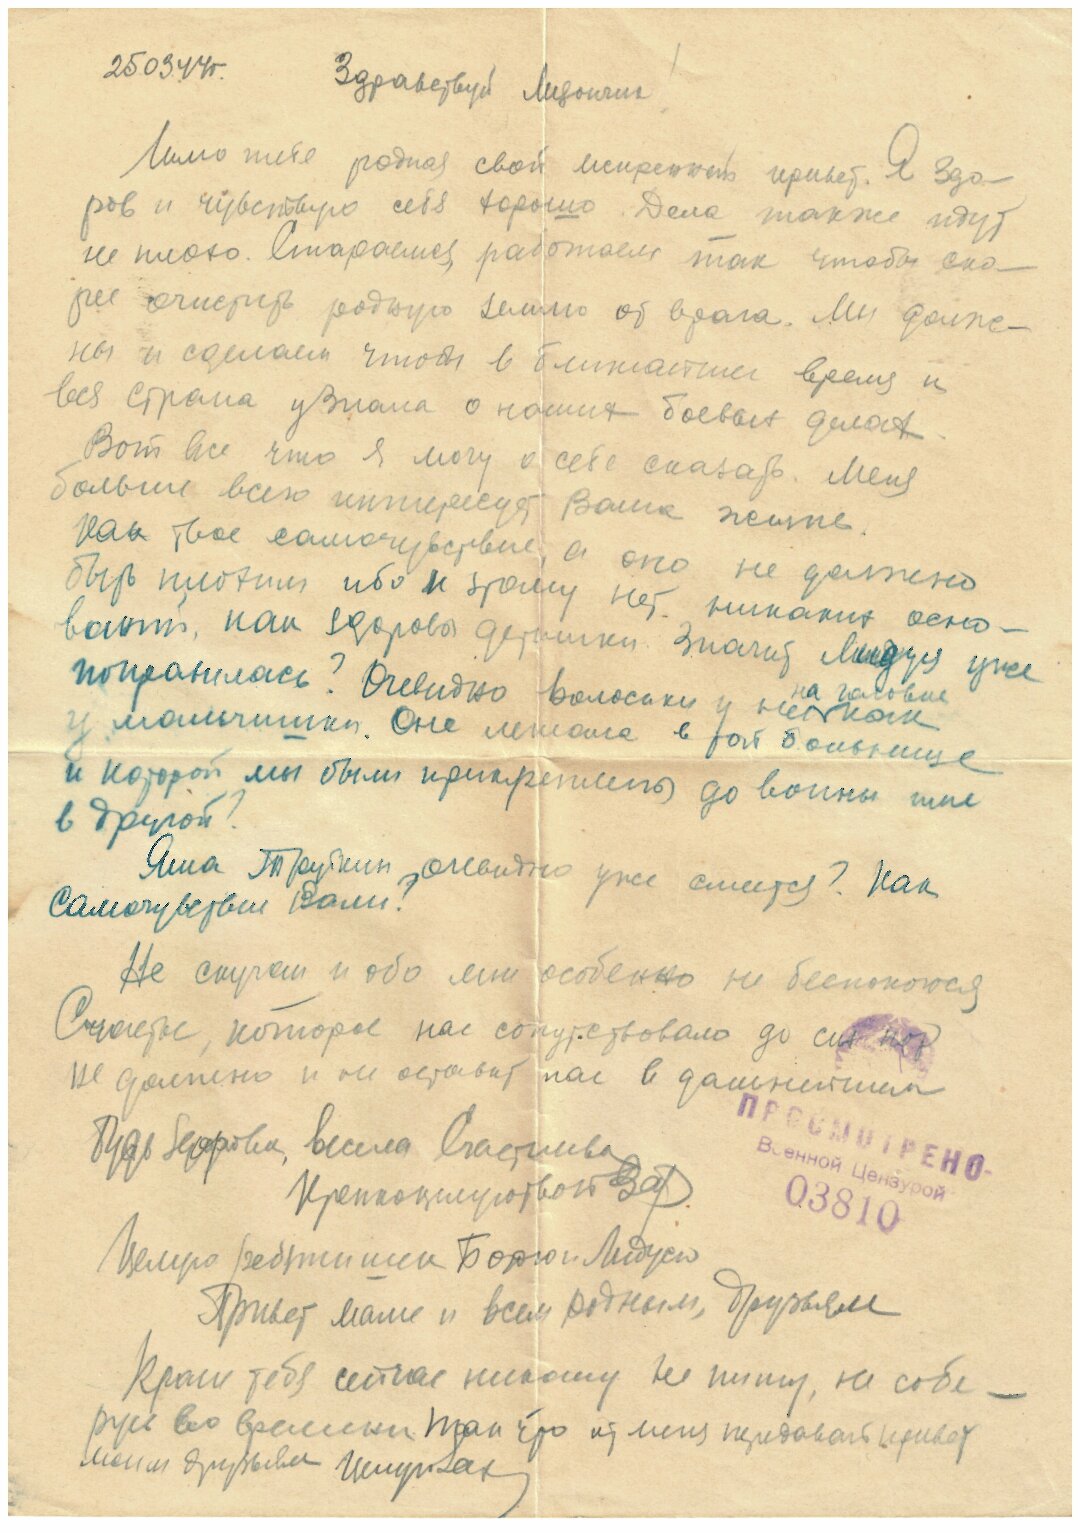 25.03.44г. Здравствуй Лидончик!
Шлю тебе родная свой искренний привет. Я здо-
ров и чувствую себя хорошо. Дела также идут
не плохо. Стараемся, работаем так чтобы ско-
рее очистить родную землю от врага. Мы долж-
ны и сделаем чтобы в ближайшее время и
вся страна узнала о наших боевых делах.
Вот все что я могу о себе сказать. Меня
больше всего интересует Ваша жизнь.
Как твое самочувствие, а оно не должно
быть плохим ибо к этому нет никаких осно-
ваний, как здоровы детишки. Значит Лидуся уже
поправилась? Очевидно волосики у нее на головке как
у мальчишки. Она лежала в той больнице
к которой мы были прикреплены до войны или
в другой?
Яша очевидно уже смеется? Как
самочувствие Вали?
Не скучай и обо мне особенно не беспокойся
Счастье, которое нас сопутствовало до сих пор
не должно и не оставит нас в дальнейшем
Будь здорова, весела Счастлива
Крепкоцелую твой
Целую ребятишек Борю и Лидусю
Привет маме и всем родным, друзьям
Кроме тебя сейчас никому не пишу, не собе-
русь во времени так что от меня передавай привет
моим друзьям Целую
ПРОСМОТРЕНО
Военной Цензурой
03810